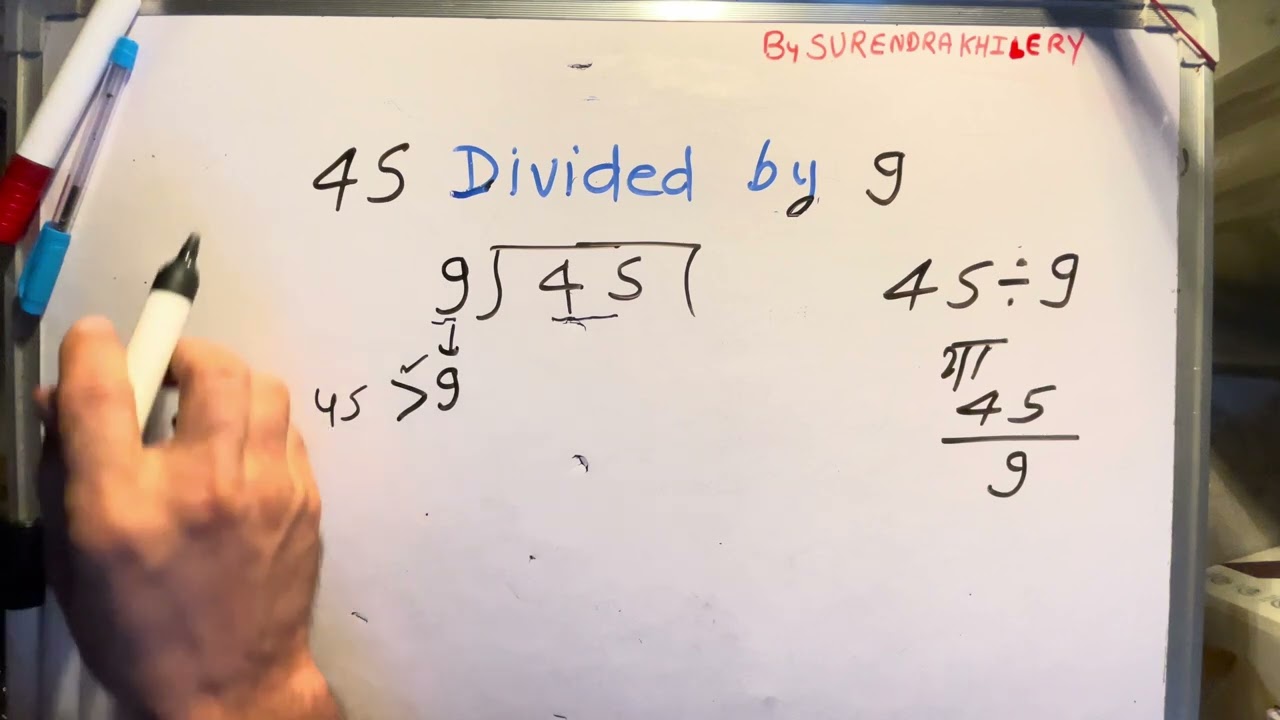 By SURENDRA KHILERY
45 Divided by 9
9) 45 (
45 ÷ 9
9
45 > 9
या
45
9